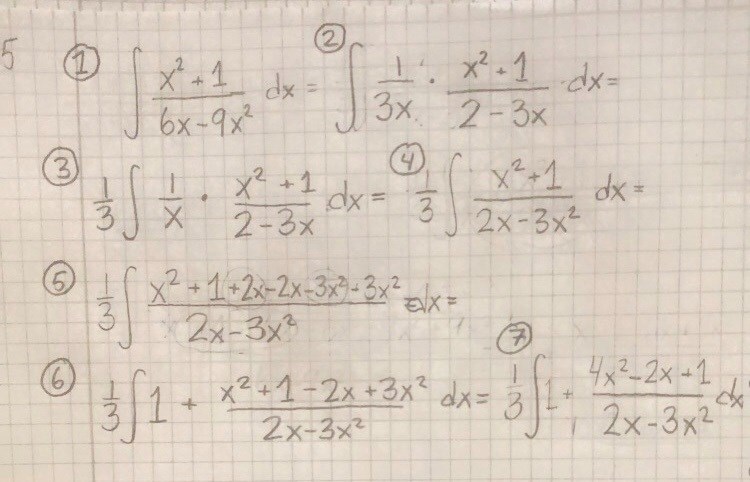 5 ① ∫ (x² + 1)/(6x - 9x²) dx = ② ∫ 1/(3x) · (x² + 1)/(2 - 3x) dx =
③ 1/3 ∫ 1/x · (x² + 1)/(2 - 3x) dx = ④ 1/3 ∫ (x² + 1)/(2x - 3x²) dx =
⑤ 1/3 ∫ (x² + 1 + 2x - 2x - 3x² + 3x²)/(2x - 3x²) dx =
⑥ 1/3 ∫ 1 + (x² + 1 - 2x + 3x²)/(2x - 3x²) dx = ⑦ 1/3 ∫ 1 + (4x² - 2x + 1)/(2x - 3x²) dx